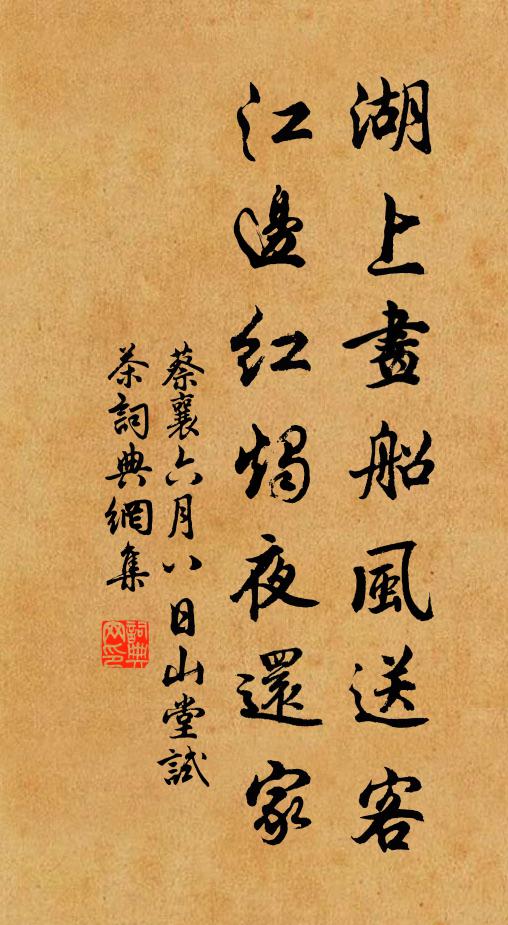 湖上畫船風送客
江邊紅燭夜還家
蔡襄六月八日山堂試
茶詞典網集
詞典
网印